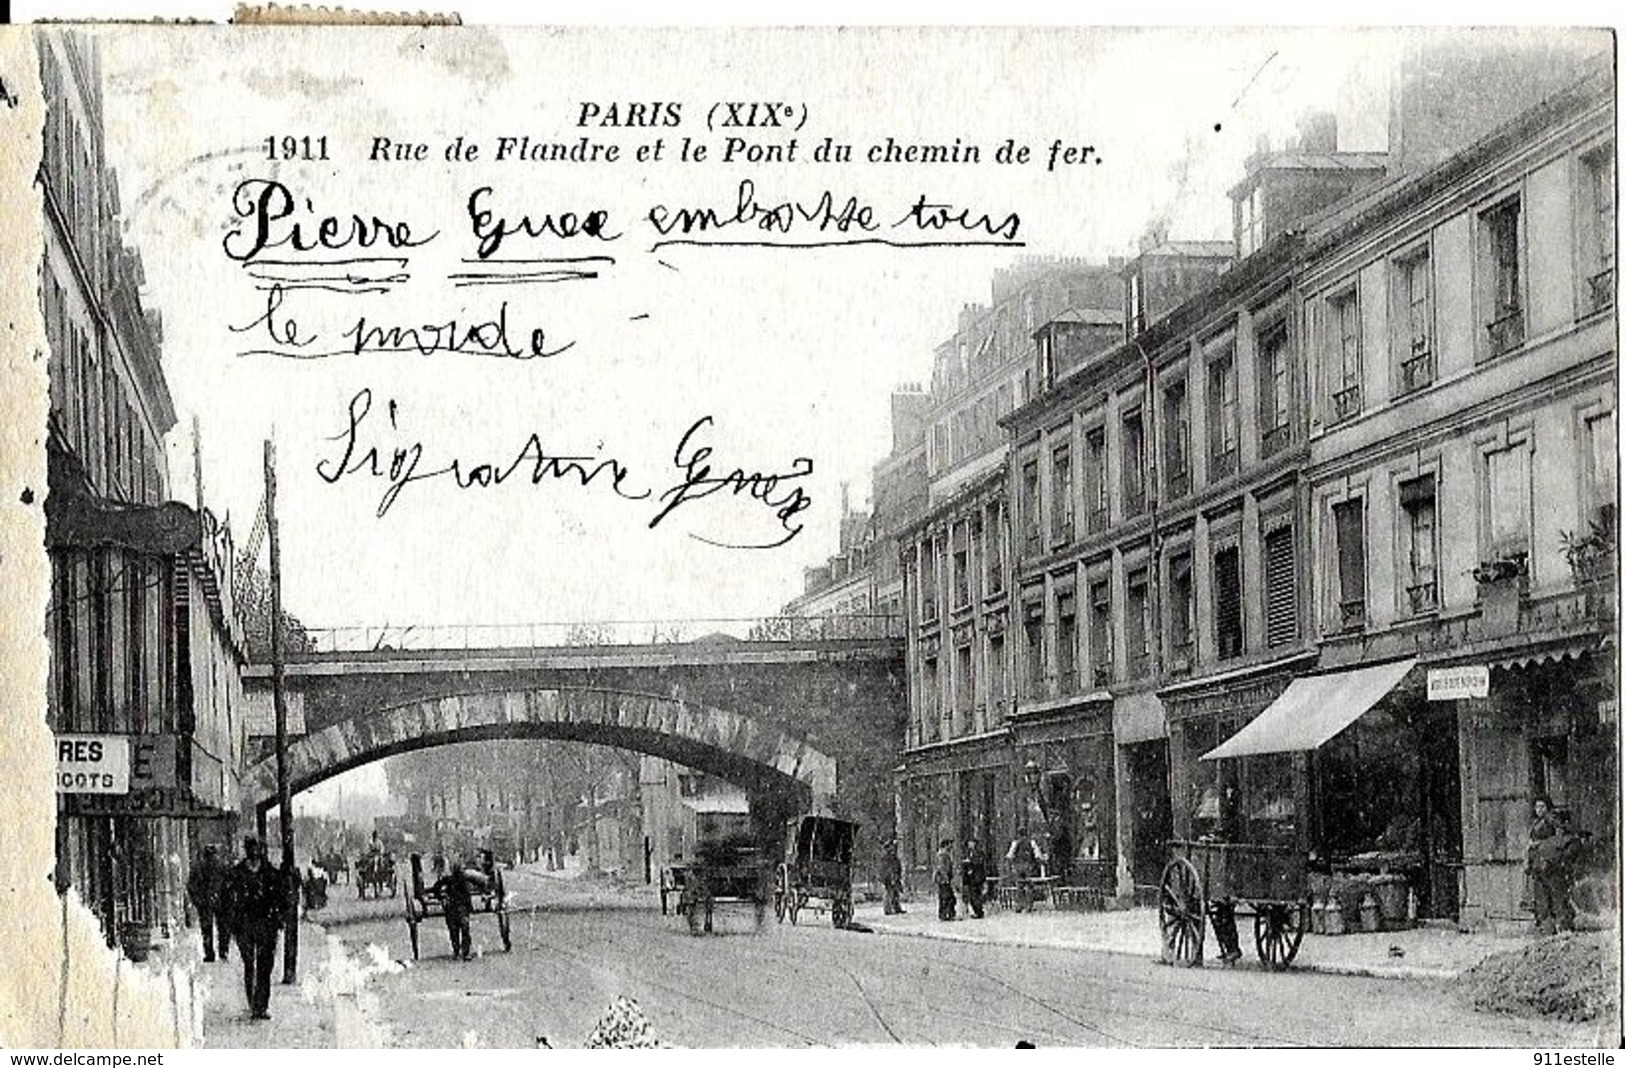 PARIS (XIXe)
1911 Rue de Flandre et le Pont du chemin de fer.
Pierre Guex embrasse tous
le monde
Signature Guex
RES
IGOTS
E
www.delcampe.net
911estelle